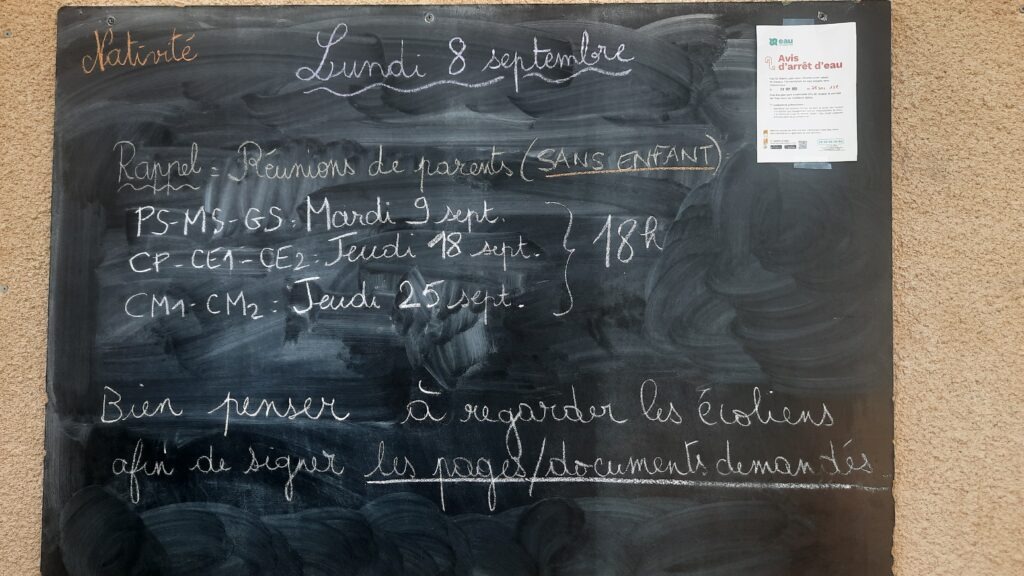 Nativité
Lundi 8 septembre
eau
Avis
d'arrêt d'eau
Rappel = Réunions de parents (SANS ENFANT)
PS-MS-GS: Mardi 9 sept.
CP-CE1-CE2: Jeudi 18 sept.
18h
CM1-CM2: Jeudi 25 sept.
Bien penser à regarder les écoliens
afin de signer les pages/documents demandés